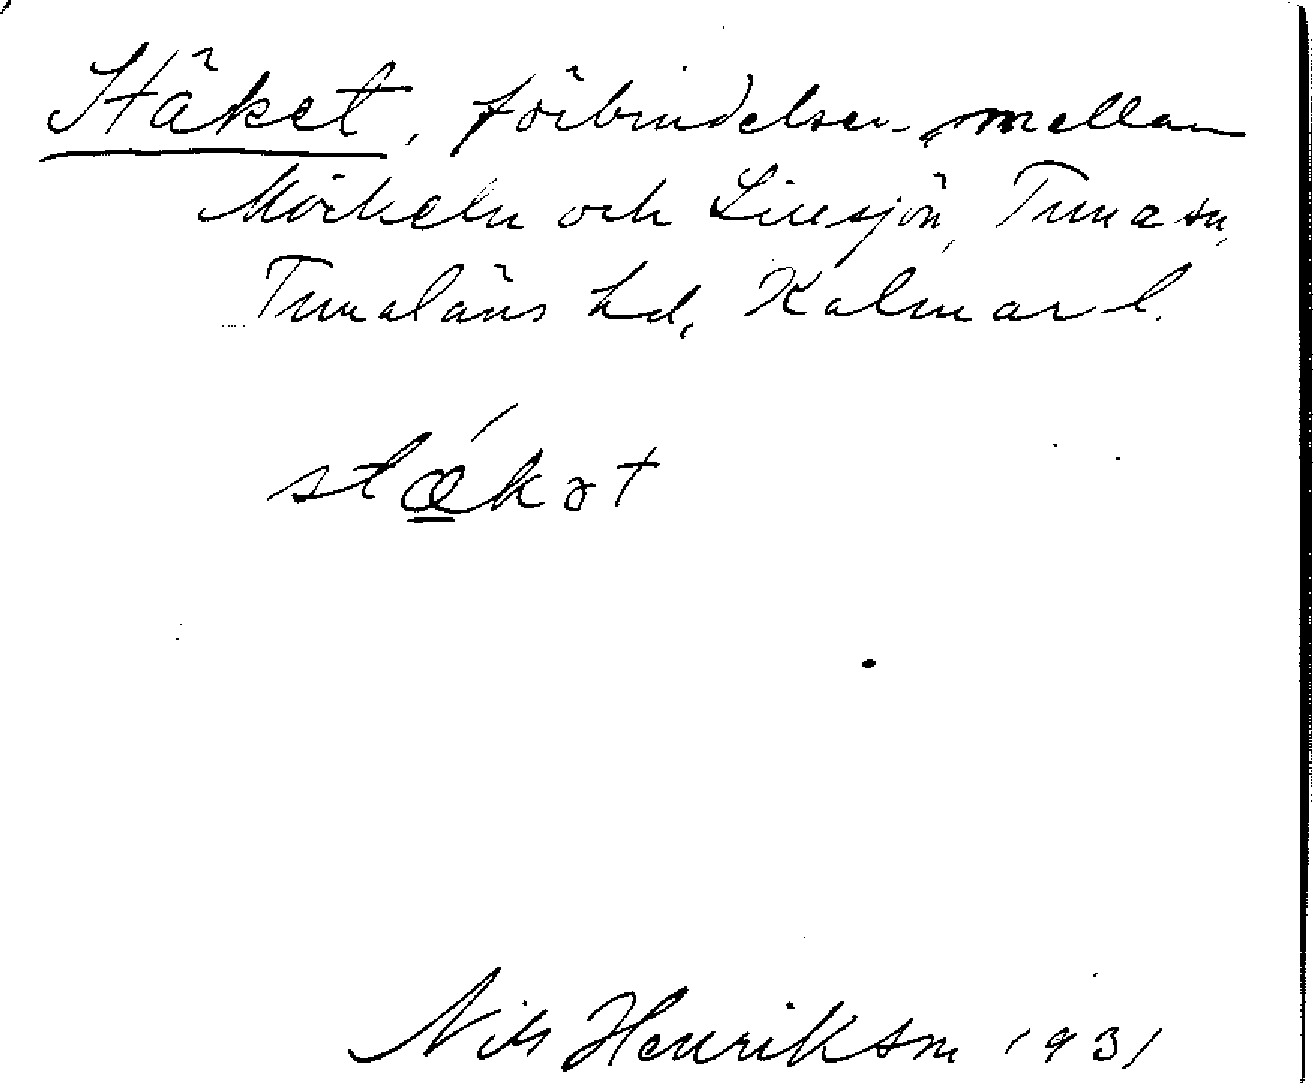 Stäket, förbindelsen mellan
Mörkeln och Linesjön, Tuna sn,
Tunaläns hd, Kalmar l.
stǽkət
Nils Henrikson 1931